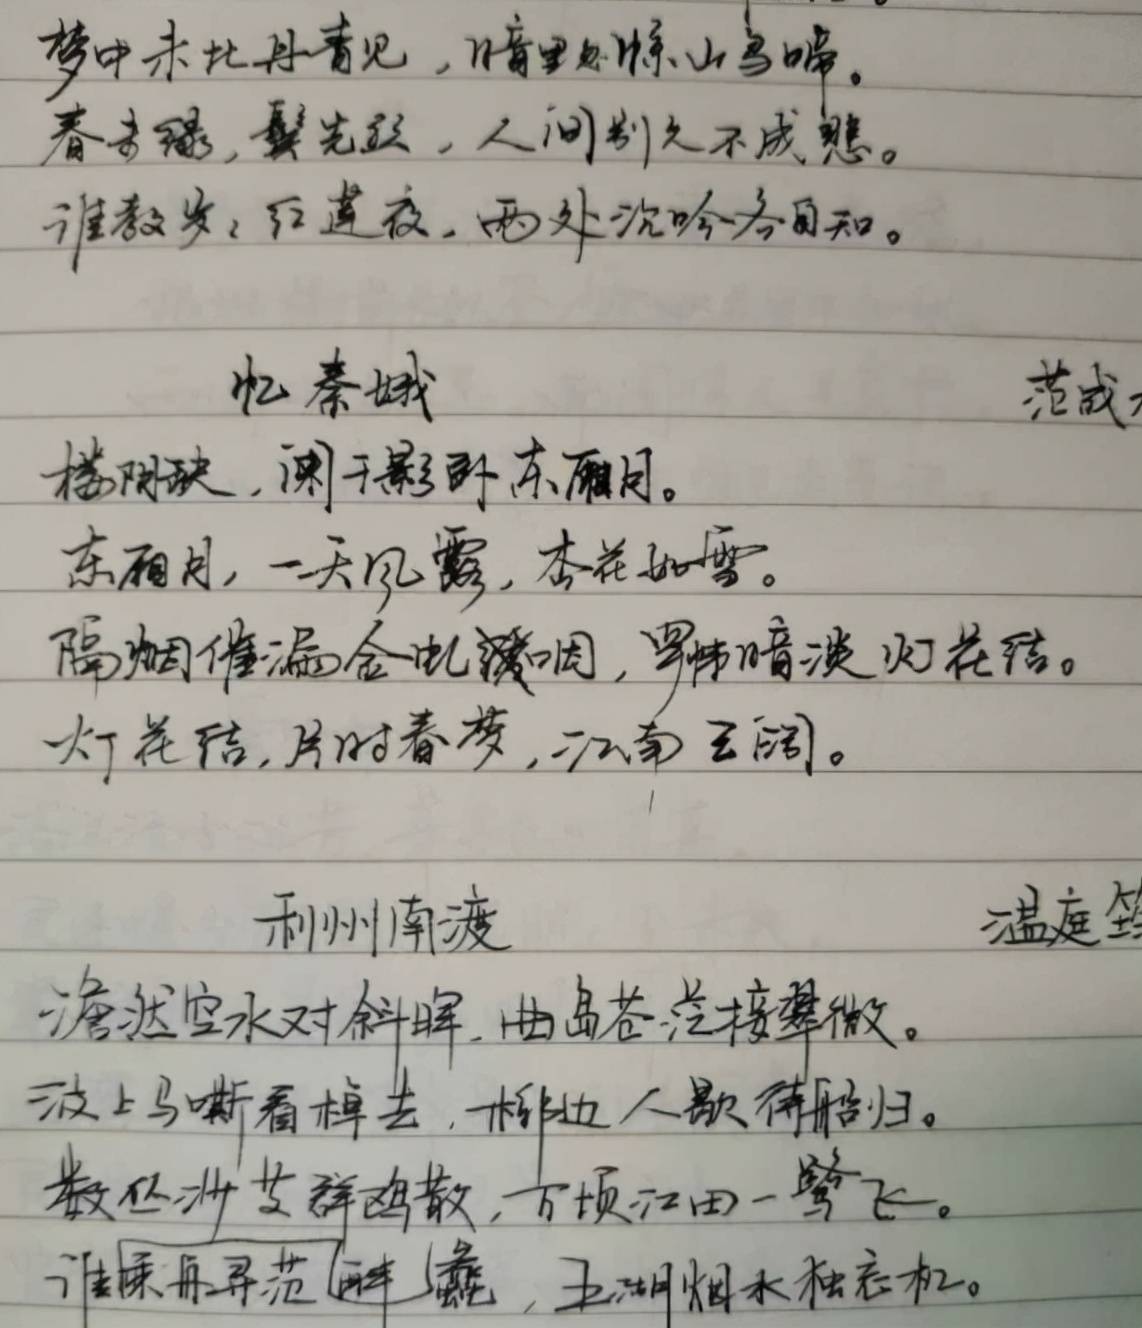 梦中未比丹青见，暗里忽惊山鸟啼。
春未绿，鬓先丝，人间别久不成悲。
谁教岁々红莲夜，两处沉吟各自知。
忆秦娥 范成大
楼阴缺，阑干影卧东厢月。
东厢月，一天风露，杏花如雪。
隔烟催漏金虬咽，罗帏暗淡灯花结。
灯花结，片时春梦，江南天阔。
利州南渡 温庭筠
澹然空水对斜晖，曲岛苍茫接翠微。
波上马嘶看棹去，柳边人歇待船归。
数丛沙艾群鸥散，万顷江田一鹭飞。
谁乘舟寻范蠡，五湖烟水独忘机。